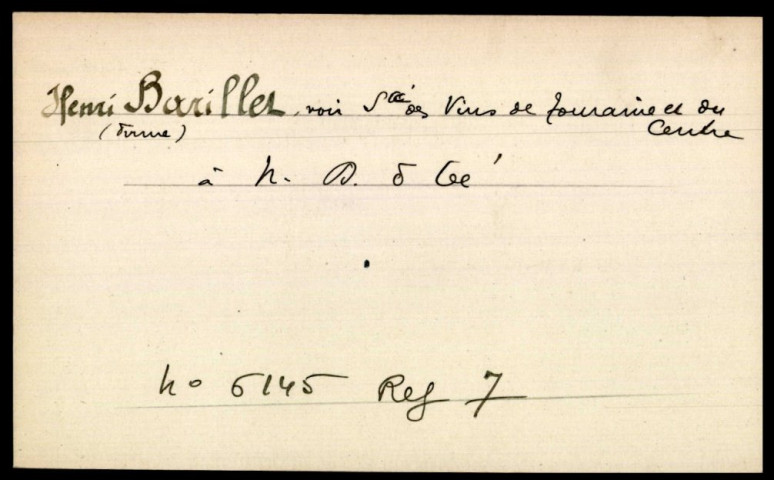 Henri Barillet, voir Sté des Vins de Touraine et du
(Firme) Centre
à N. D. d'Oé
No 5145 Reg 7